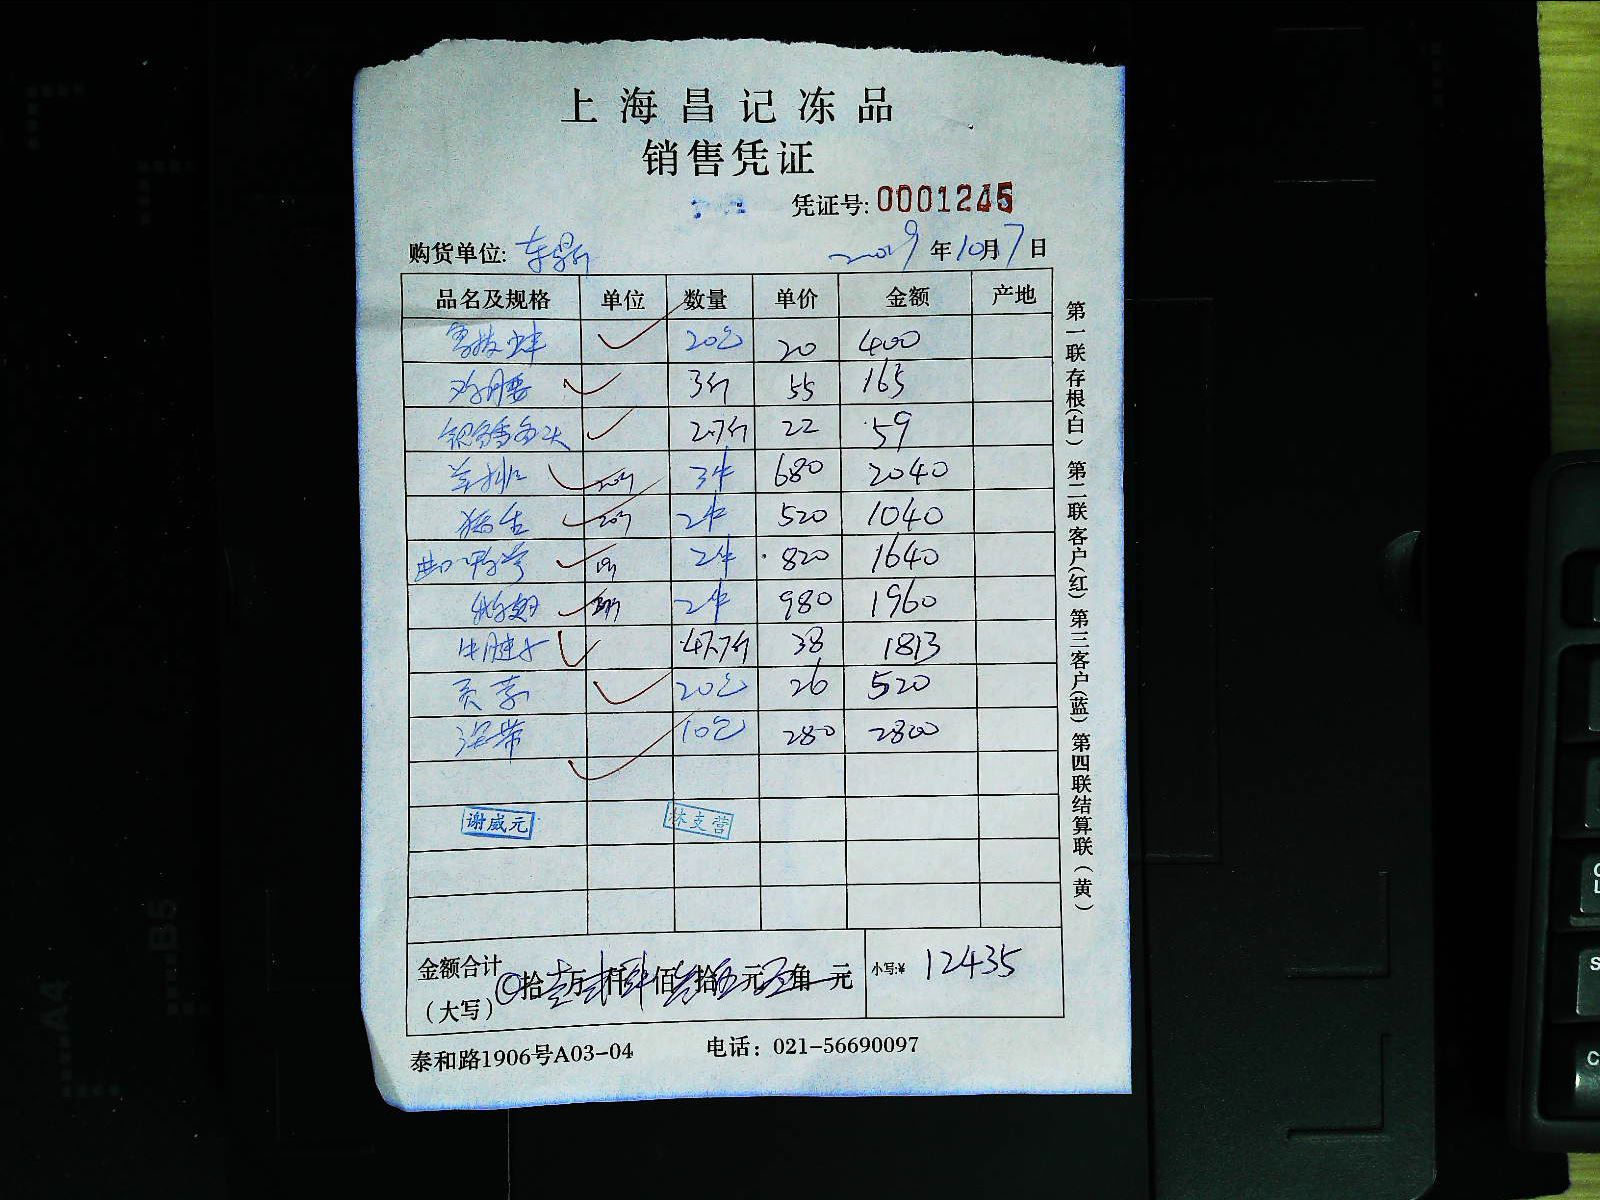 上海昌记冻品
销售凭证
凭证号: 0001245
购货单位: 东鼎 2019年10月7日
品名及规格 单位 数量 单价 金额 产地
20包 20 400
鸡腰 3斤 55 165
银鳕鱼头 2.7斤 22 59
羊排 20斤 3件 680 2040
20斤 2件 520 1040
进口鸭掌 2件 820 1640
2件 980 1960
牛腱子 47.7斤 38 1813
贡菜 20包 26 520
海带 10包 280 2800
谢威元 林支营
金额合计（大写） 拾壹万贰仟肆佰叁拾伍元 角 元 小写:¥ 12435
泰和路1906号A03-04 电话：021-56690097
第一联存根(白) 第二联客户(红) 第三客户(蓝) 第四联结算联（黄）